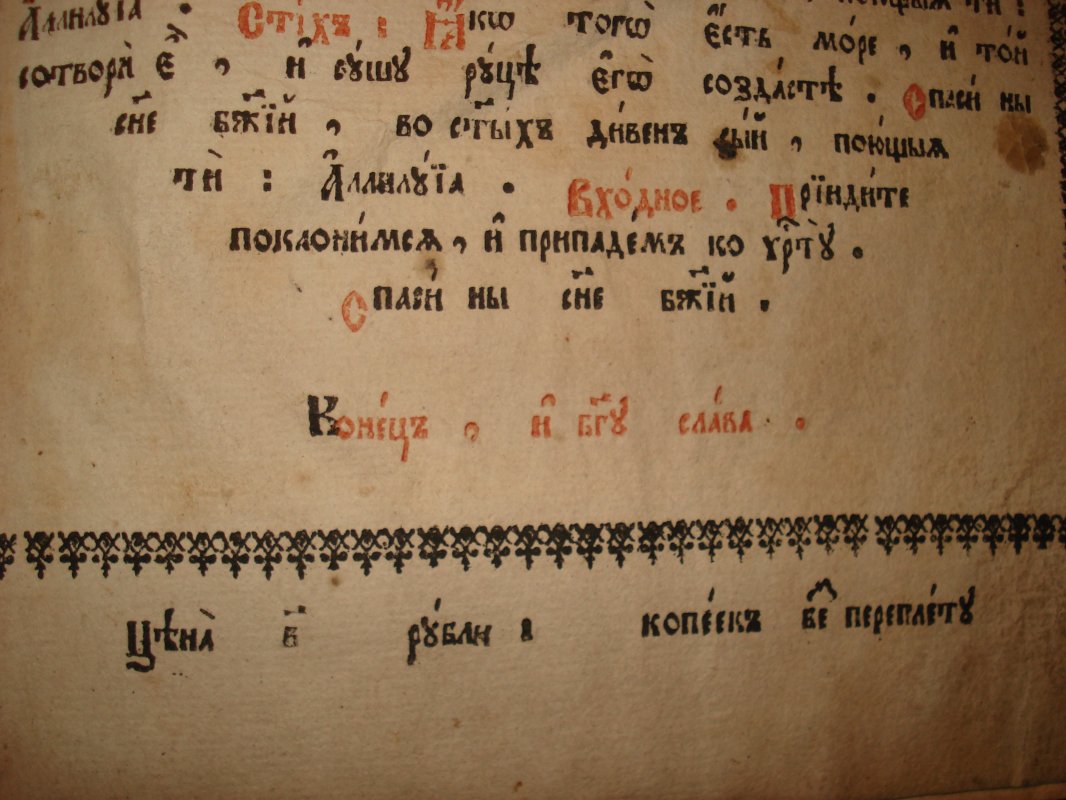 Аллилꙋ́їа . Сті́хъ : Ꙗ҆́кѡ тогѡ̀ є҆́сть мо́ре , и҆ то́й
сотворѝ є҆̀ , и҆ сꙋ́шꙋ рꙋ́цѣ є҆гѡ̀ созда́стѣ . Спаси́ ны
сн҃е бж҃їй , во ст҃ы́хъ ди́венъ сы́й , пою́щыѧ
тѝ : А҆ллилꙋ́їа . Вхо́дное . Прїиди́те
поклони́мсѧ , и҆ припаде́мъ ко хрⷭ҇тꙋ̀ .
Спаси́ ны сн҃е бж҃їй .
Коне́цъ , и҆ бг҃ꙋ сла́ва .
Цѣна̀ в҃ рꙋ́бли и копе́екъ бе переплє́тꙋ